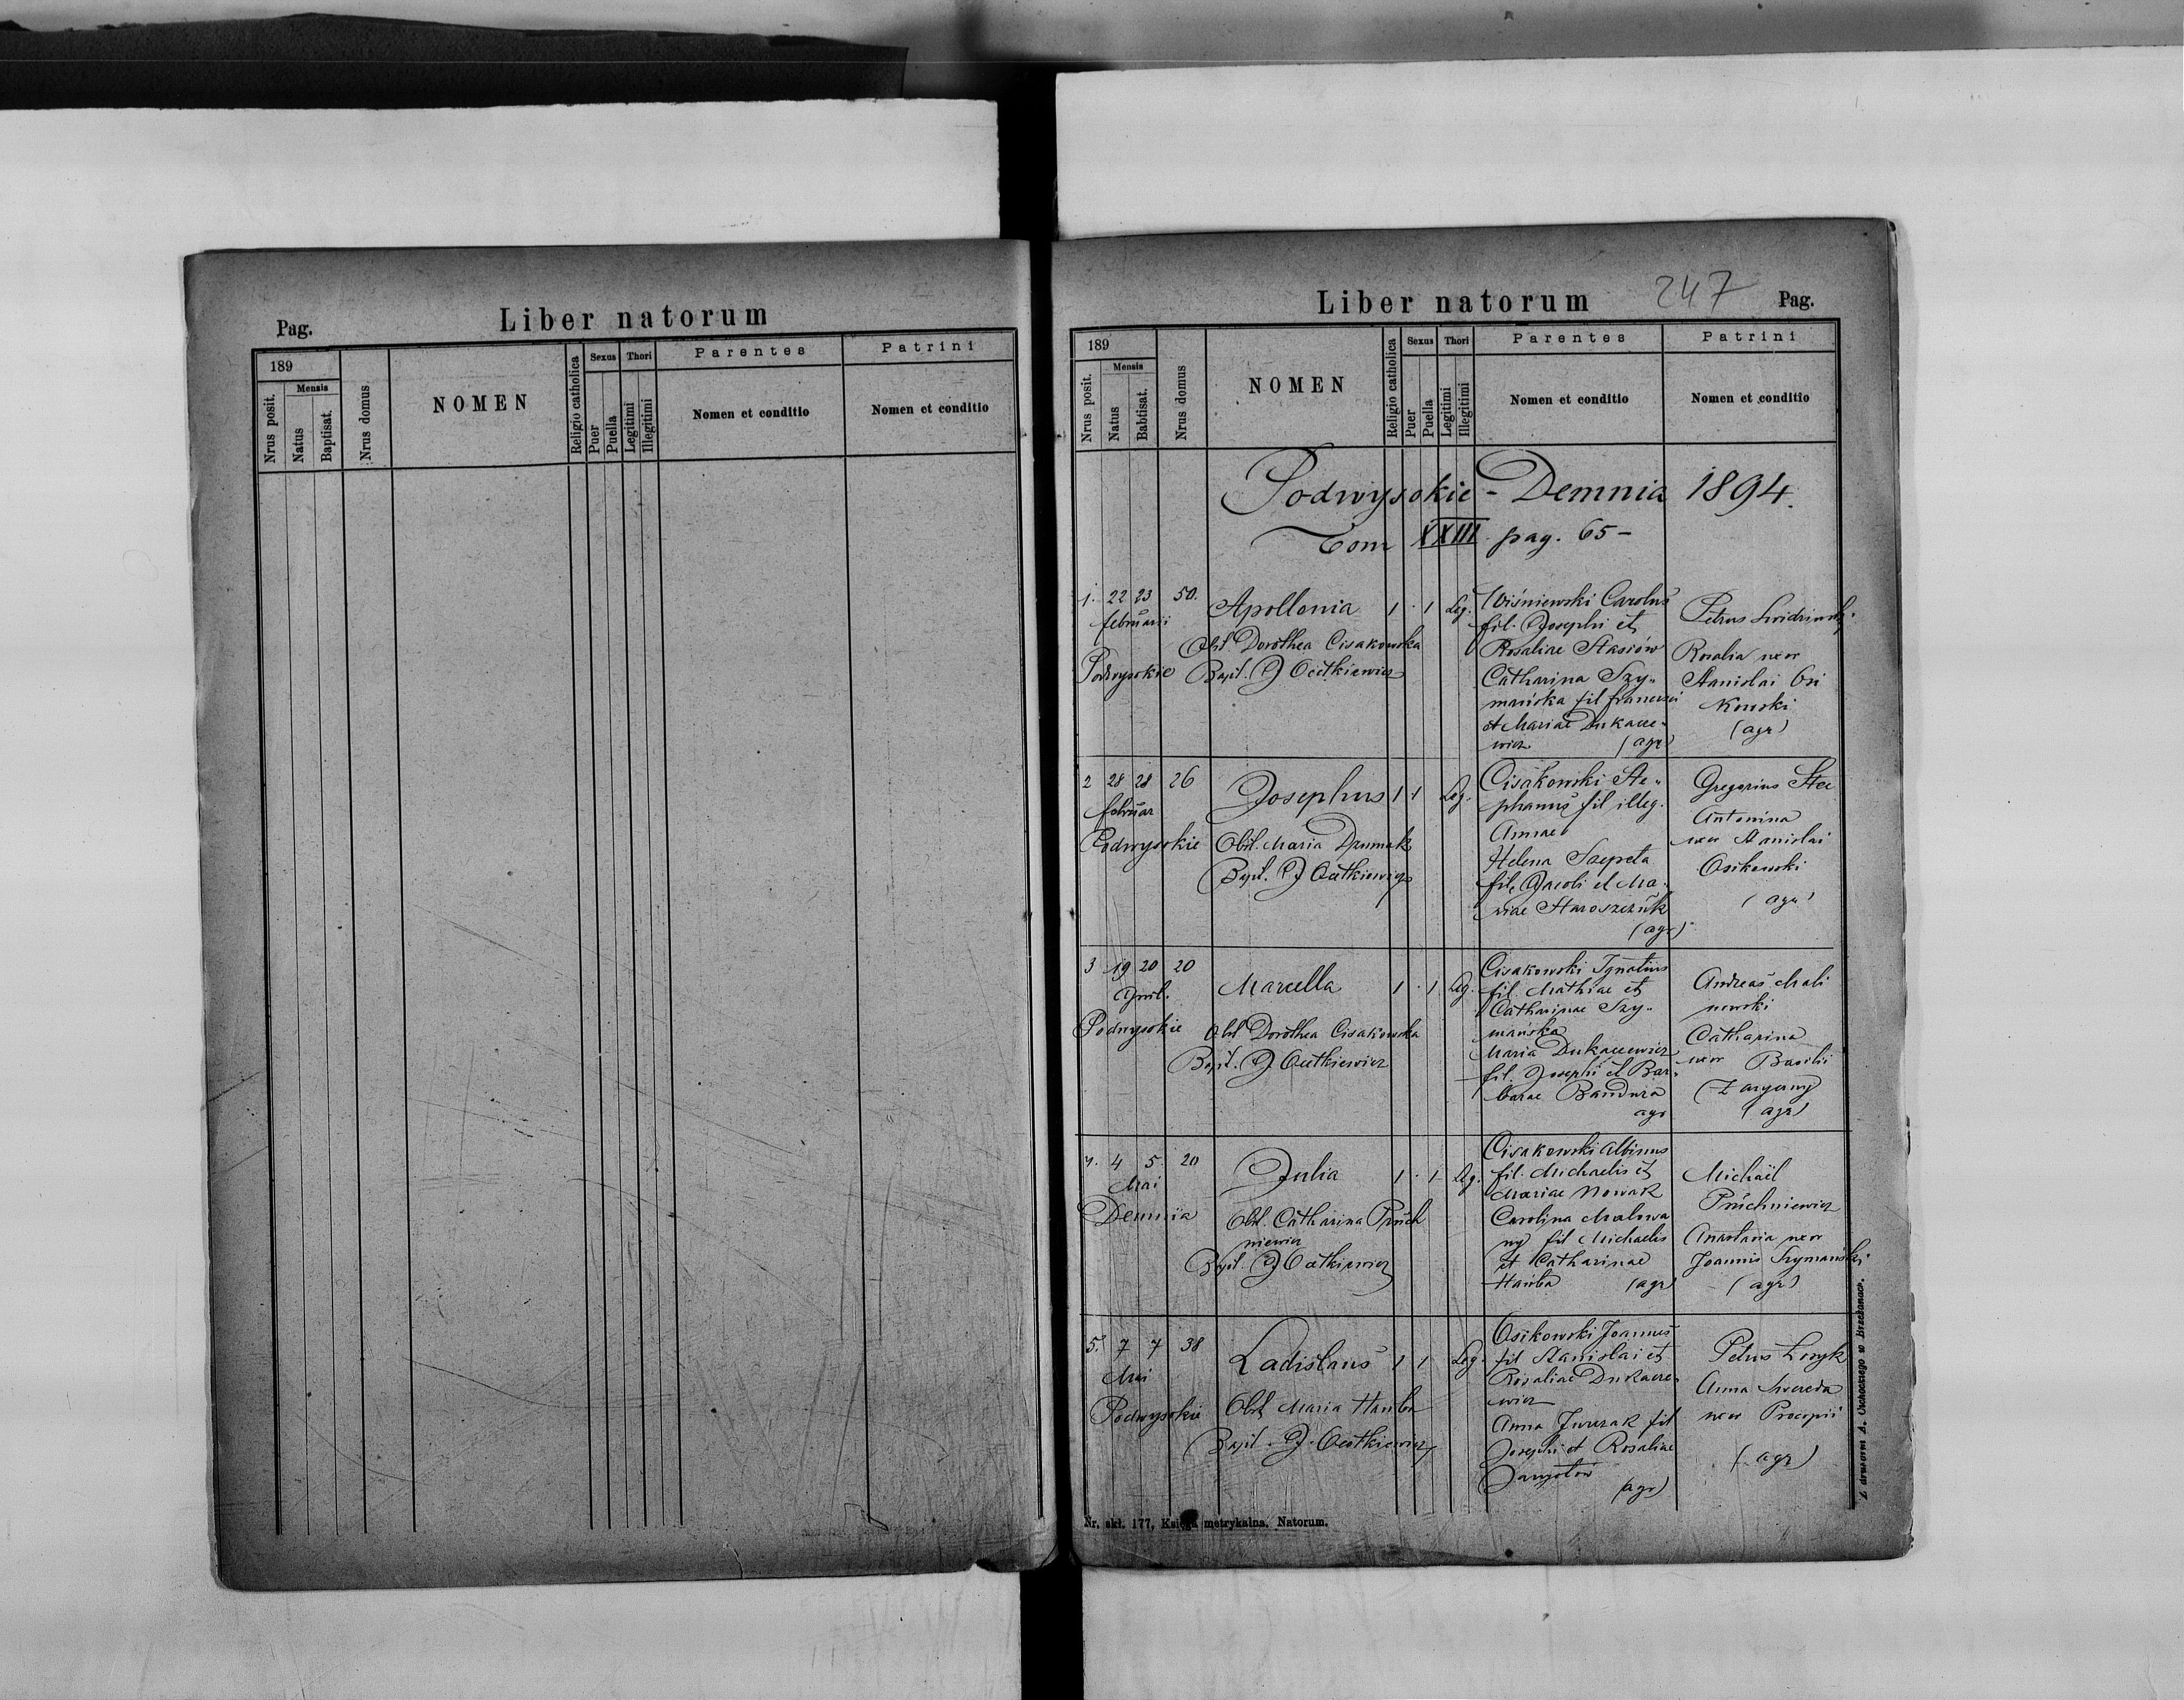 Pag.
Liber natorum
189
Mensis
Nrus posit.
Natus
Baptisat.
Nrus domus
NOMEN
Religio catholica
Sexus
Puer
Puella
Thori
Legitimi
Illegitimi
Parentes
Nomen et conditio
Patrini
Nomen et conditio
Liber natorum
247
Pag.
189
Mensis
Nrus posit.
Natus
Babtisat.
Nrus domus
NOMEN
Religio catholica
Sexus
Puer
Puella
Thori
Legitimi
Illegitimi
Parentes
Nomen et conditio
Patrini
Nomen et conditio
Podwysokie - Demnia 1894.
Tom XXIII. pag. 65 -
1. 22 23 50.
februarii
Podwysokie
Apollonia 1 · 1 Leg.
Obst Dorothea Cisakowska
Bapt. J Ocetkiewicz
Wiśniewski Carolus
fil. Josephi et
Rosaliae Stasiów
Catharina Szy-
mańska fil francisci
et Mariae Dukacze-
wicz (agr)
Petrus
Rosalia uxor
Stanislai Osi
kowski
(agr)
2 28 28 26
februar
Podwysokie
Josephus 1 1 Leg.
Obst. Maria
Bapt. J Ocetkiewicz
Cisakowski Ste-
phanus fil illeg.
Annae
Helena
fil. Jacobi et Ma-
riae Staroszczuk
(agr)
Gregorius
Antonina
uxor Stanislai
Osikowski
(agr)
3 19 20 20
April.
Podwysokie
Marcella 1 · 1 Leg.
Obst Dorothea Cisakowska
Bapt. J Ocetkiewicz
Cisakowski Ignatius
fil. Mathiae et
Catharinae Szy-
mańska
Maria Dukaczewicz
fil. Josephi et Bar-
barae Bandura
agr
Andreas Mali
nowski
Catharina
uxor Basilii
(agr)
4. 4 5 20
Mai
Demnia
Julia 1 · 1 Leg.
Obst. Catharina Pruch
niewicz
Bapt. J Ocetkiewicz
Cisakowski Albinus
fil. Michaelis et
Mariae Nowak
Carolina Malowa
ny fil Michaelis
et Catharinae
Hańba (agr)
Michaël
Pruchniewicz
Anastasia uxor
Joannis Szymański
(agr)
5. 7 7 38
Mai
Podwysokie
Ladislaus 1 1 Leg.
Obst Maria Hańba
Bapt. J. Ocetkiewicz
Osikowski Joannes
fil Stanislai et
Rosaliae Dukacze-
wicz
Anna Jurczak fil
Josephi et Rosaliae
(agr)
Petrus
Anna
uxor Procopii
(agr)
Z drukarni A. Cichockiego w Brzeżanac.
Nr. skł. 177, Księga metrykalna. Natorum.